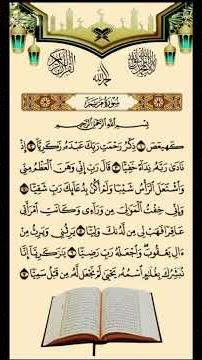 سُورَةُ مَرْيَم
بِسْمِ اللَّهِ الرَّحْمَٰنِ الرَّحِيمِ
كٓهيعٓصٓ ۝ ذِكْرُ رَحْمَتِ رَبِّكَ عَبْدَهُۥ زَكَرِيَّآ ۝ إِذْ
نَادَىٰ رَبَّهُۥ نِدَآءً خَفِيًّا ۝ قَالَ رَبِّ إِنِّى وَهَنَ ٱلْعَظْمُ مِنِّى
وَٱشْتَعَلَ ٱلرَّأْسُ شَيْبًا وَلَمْ أَكُنۢ بِدُعَآئِكَ رَبِّ شَقِيًّا ۝
وَإِنِّى خِفْتُ ٱلْمَوَٰلِىَ مِن وَرَآءِى وَكَانَتِ ٱمْرَأَتِى
عَاقِرًا فَهَبْ لِى مِن لَّدُنكَ وَلِيًّا ۝ يَرِثُنِى وَيَرِثُ مِنْ
ءَالِ يَعْقُوبَ وَٱجْعَلْهُ رَبِّ رَضِيًّا ۝ يَٰزَكَرِيَّآ إِنَّا
نُبَشِّرُكَ بِغُلَٰمٍ ٱسْمُهُۥ يَحْيَىٰ لَمْ نَجْعَل لَّهُۥ مِن قَبْلُ سَمِيًّا ۝